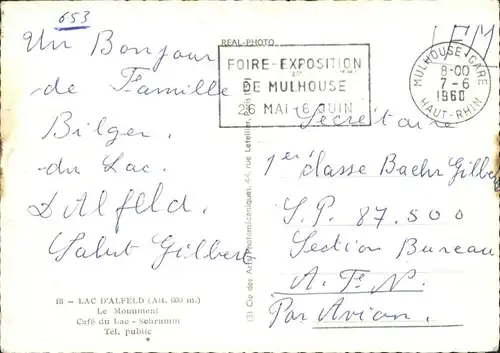 653
Un Bonjour
de Famille
Bilger.
du Lac.
D'Alfeld.
Salut Gilbert
18 — LAC D'ALFELD (Alt. 600 m.)
Le Monument
Café du Lac - Schramm
Tél. public
REAL-PHOTO
(3) Cie des Arts Photomécaniques, 44, rue Letellier, Paris
FOIRE-EXPOSITION
DE MULHOUSE
26 MAI-6 JUIN
MULHOUSE-GARE
8-00
7-6
1960
HAUT-RHIN
Secrétaire
1er classe Baehr Gilbert
S.P. 87.500
Section Bureau
A.F.N.
Par Avion.